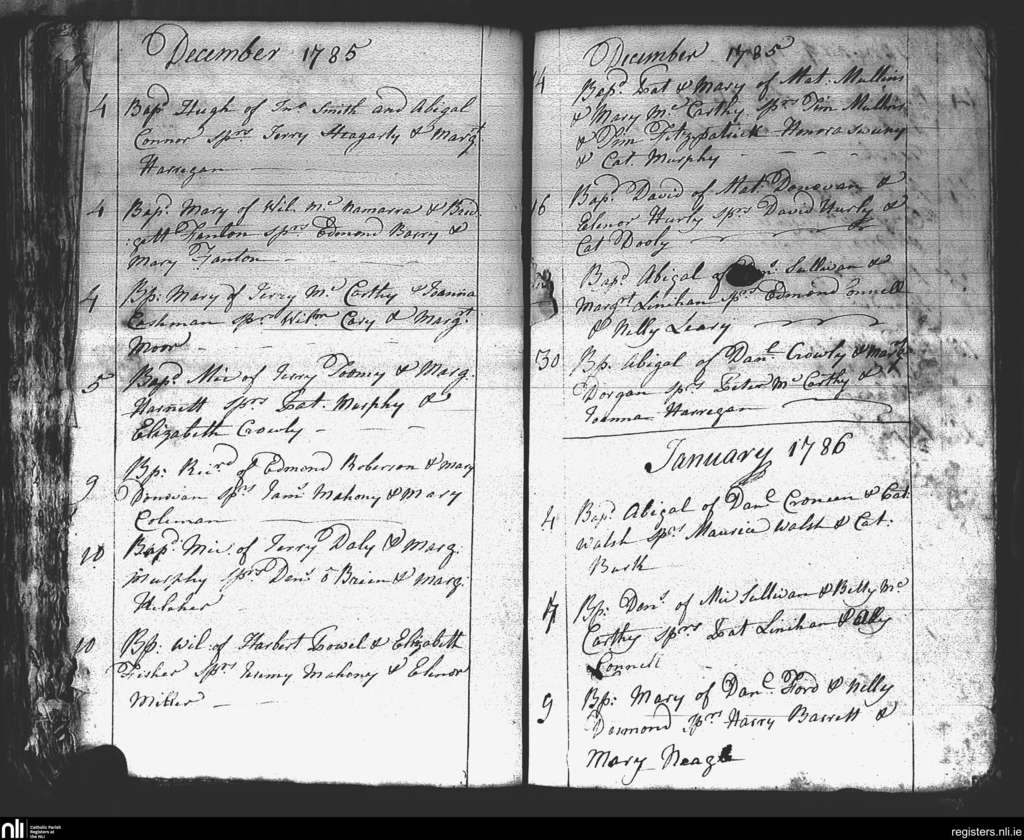 December 1785
4 Bapd. Hugh of Jno. Smith and Abigal
Connor Sprs Jerry Heagarty & Margt.
Harregan
4 Bapd. Mary of Wilm. Mc. Namarra & Brid
:gett Fanton sprs Edmond Barry &
Mary Fanton
4 Bp: Mary of Jerry Mc. Carthy & Joanna
Cashman sprs Wilm Cary & Margt.
Moor
5 Bapd. Mic of Jerry Toomey & Marg.
Harnett sprs Pat. Murphy &
Elizabeth Crowly
9 Bp: Ricrd of Edmond Roberson & Mary
Donovan sprs Jams Mahony & Mary
Coleman
10 Bapd. Mic of Jerry Daly & Marg.
Murphy sprs Dens. o Brien & Marg:
Keleher
10 Bp: Wil: of Harbert Powel & Elizabeth
Fisher sprs Jeremy Mahony & Elenor
Miller
December 1785
14 Bapd. Pat & Mary of Mat. Mullins
& Mary Mc. Carthy sprs Tim Mullins
& Tim Fitzpatrick Honora Sweny
& Cat. Murphy
16 Bapd. David of Mat. Donovan &
Elenor Hurly sprs David Hurly &
Cat Dooly
Bapd. Abigal of Sullivan &
Margt Linihan sprs Edmond Connell
& Nelly Leary
30 Bp: Abigal of Danl. Crowly & Margt.
Dorgan sprs Peter Mc Carthy &
Joanna Harregan
January 1786
4 Bapd. Abigal of Danl. Croneen & Cat:
Walsh sprs Maurice Walsh & Cat.
Burk
Bp: Danl. of Mic Sullivan & Betty Mc.
Carthy sprs Pat Linihan &
Connell
9 Bp: Mary of Danl. Ford & Nelly
Desmond sprs Harry Barrett &
Mary Neagle
nli
Catholic Parish
Registers at
the NLI
registers.nli.ie